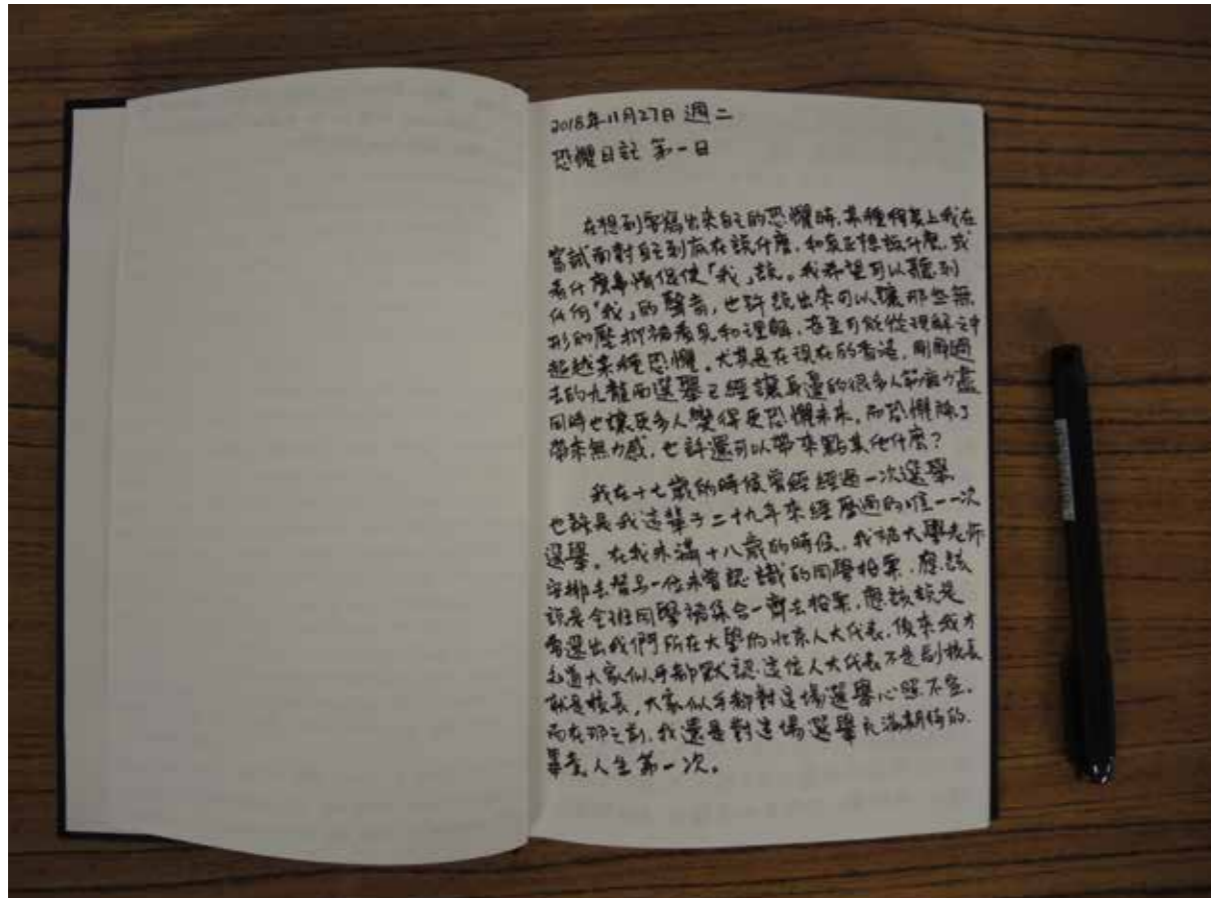 2018年11月27日 週二
恐懼日記 第一日
在想到要寫出來自己的恐懼時,某種程度上我在
嘗試面對自己到底在說什麼,和真正想說什麼,或
者什麼事情促使「我」說。我希望可以聽到
任何「我」的聲音,也許說出來可以讓那些無
形的壓抑被看見和理解,甚至可能從理解之中
超越某種恐懼。尤其是在現在的香港,剛剛過
去的九龍西選舉已經讓身邊的很多人筋疲力盡
同時也讓更多人變得更恐懼未來。而恐懼除了
帶來無力感,也許還可以帶來點其他什麼?
我在十七歲的時候曾經經過一次選舉
也許是我這輩子二十九年來經歷過的唯一一次
選舉。在我未滿十八歲的時候,我被大學老師
安排去替另一位未曾認識的同學投票,應該
說是全班同學被集合一齊去投票,應該說是
會選出我們所在大學的北京人大代表,後來我才
知道大家似乎都默認這位人大代表不是副校長
就是校長,大家似乎都對這場選舉心照不宣。
而在那之前,我還是對這場選舉充滿期待的,
畢竟人生第一次。